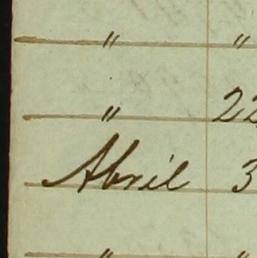 " "
" 22
Abril 3
" "